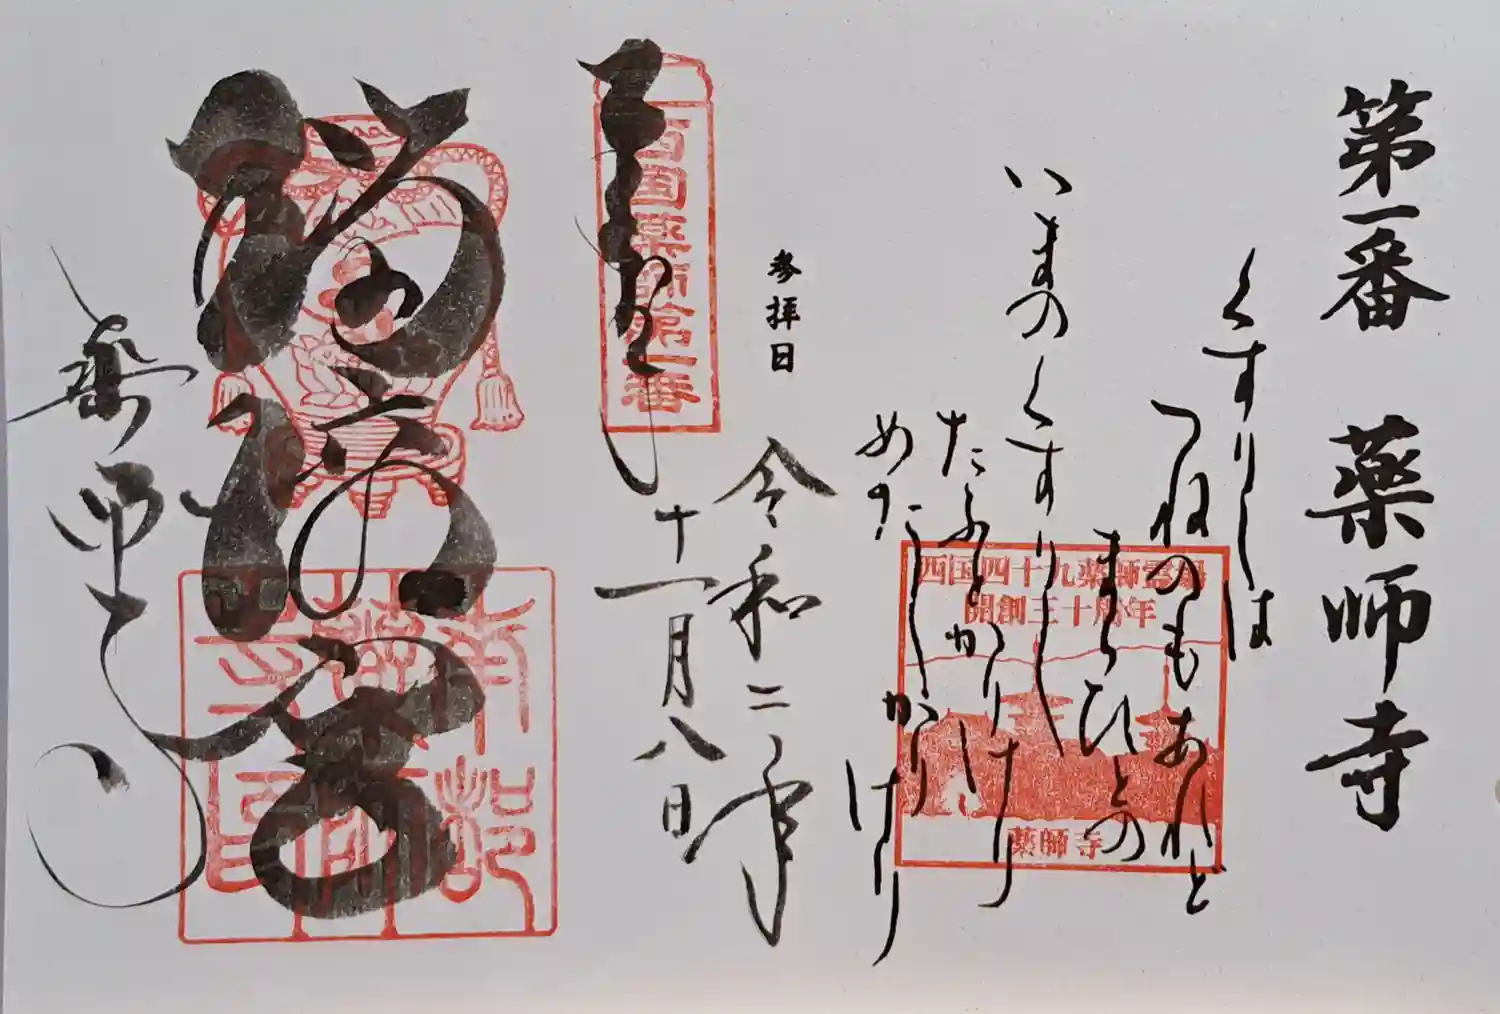 第一番 薬師寺
くすりしは
つねのもあれど
まらひとの
いまのくすりし
たふとかりけり
めだしかりけり
西国四十九薬師霊場
開創三十周年
薬師寺
参拝日
令和二年
十一月八日
西国薬師第一番
瑠璃
薬師寺